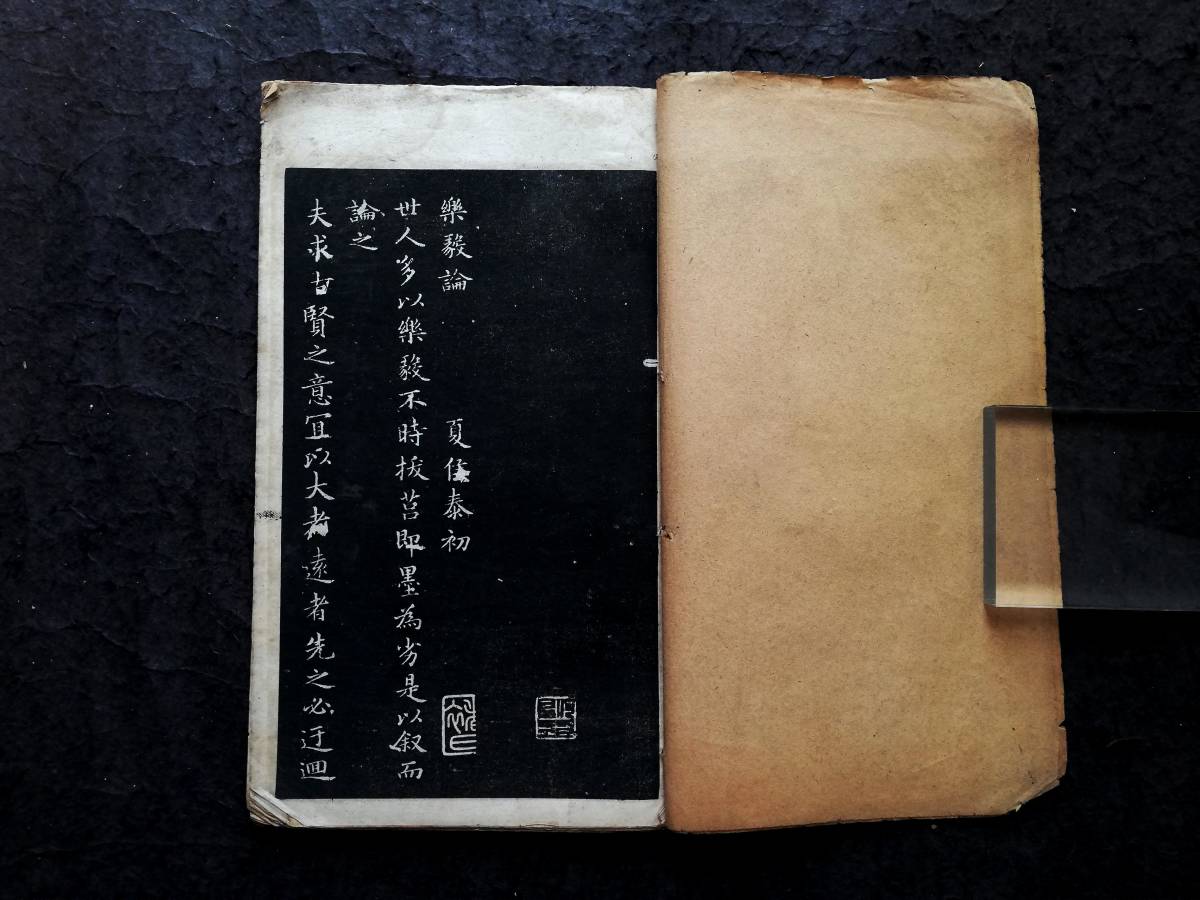 樂毅論 夏侯泰初
世人多以樂毅不時拔莒即墨為劣是以叙而
論之
夫求古賢之意宜以大者遠者先之必迂迴